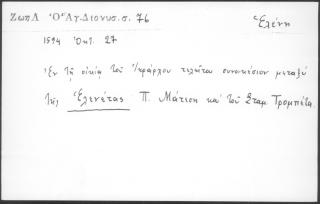 Ζωη Λ Ὁ Ἅγ. Διονυσ. σ. 76
Ἑλένη
1594 Ὀκτ. 27
Ἐν τῇ οἰκίᾳ τοῦ τελεῖται συνοικέσιον μεταξὺ
τῆς Ἑλενέτας Π. Μάτεση καὶ τοῦ Σταμ. Τρομπέτα